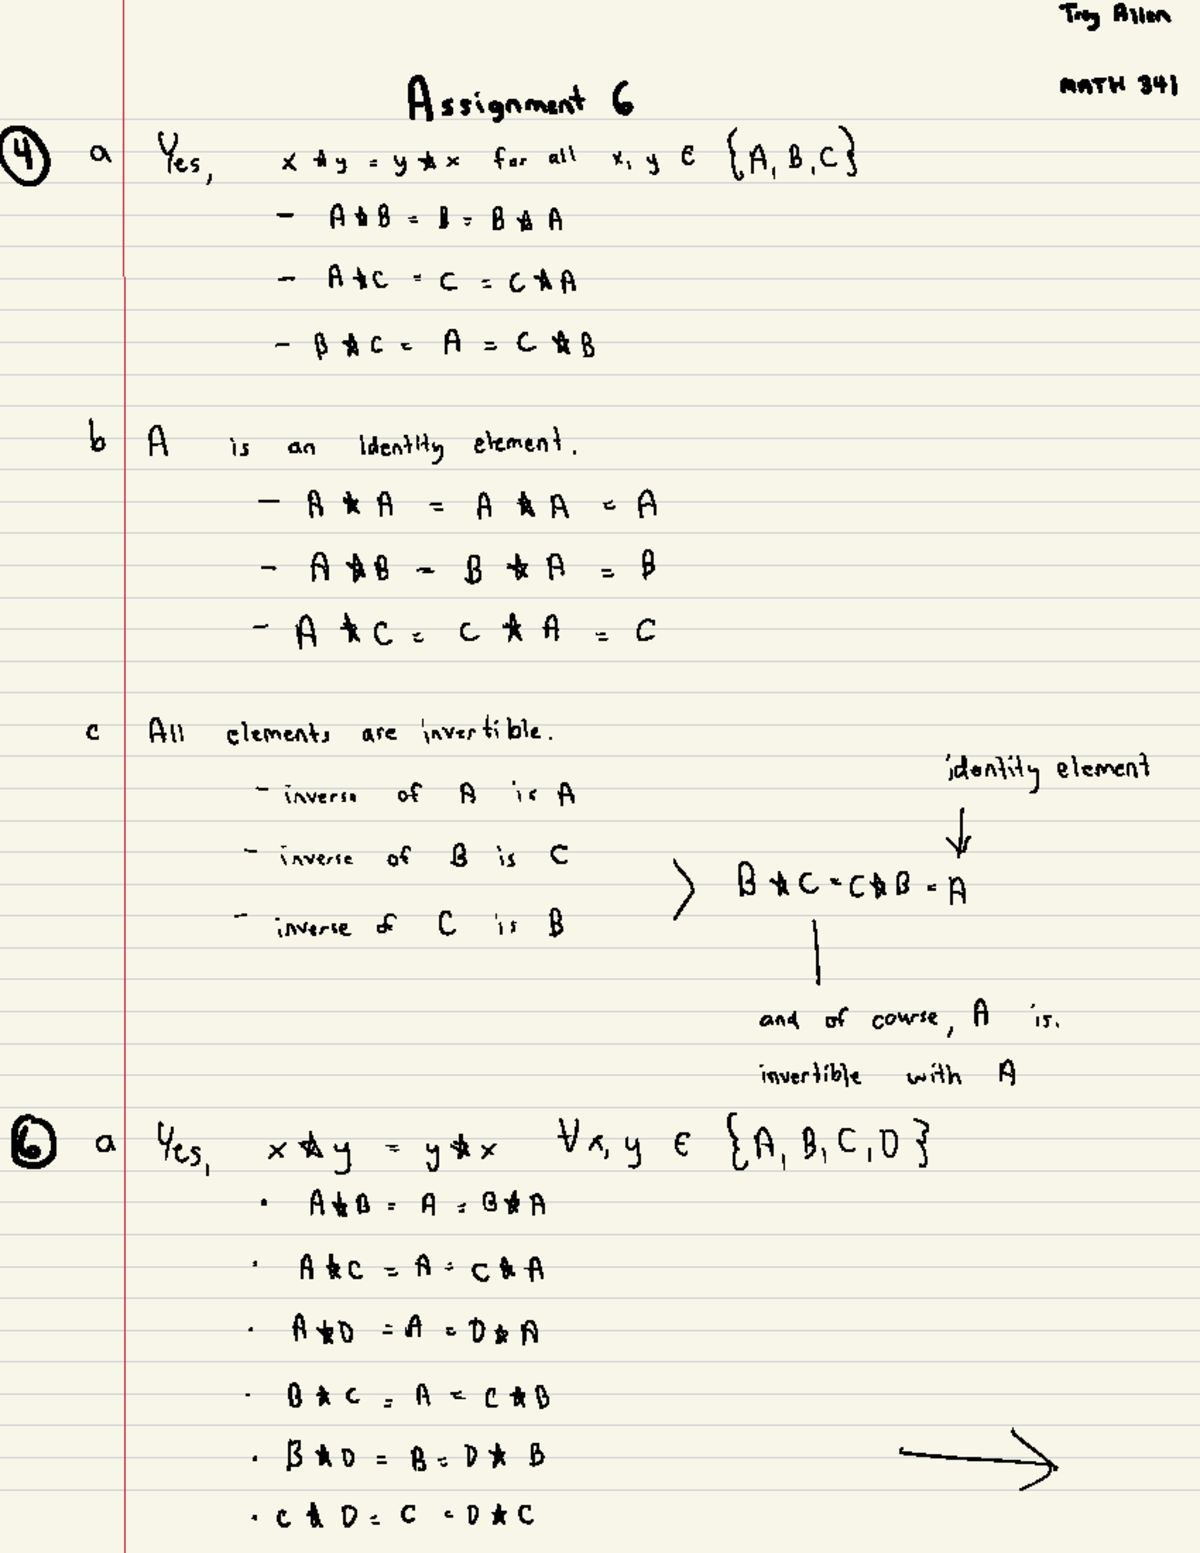 Troy Allen
MATH 341
Assignment 6
4 a Yes, x ★ y = y ★ x for all x, y ∈ {A, B, C}
- A ★ B = B = B ★ A
- A ★ C = C = C ★ A
- B ★ C = A = C ★ B
b A is an identity element.
- A ★ A = A ★ A = A
- A ★ B = B ★ A = B
- A ★ C = C ★ A = C
c All elements are invertible.
identity element
- inverse of A is A
↓
- inverse of B is C
> B ★ C = C ★ B = A
- inverse of C is B
and of course, A is.
invertible with A
6 a Yes, x ★ y = y ★ x ∀x, y ∈ {A, B, C, D}
· A ★ B = A = B ★ A
· A ★ C = A = C ★ A
· A ★ D = A = D ★ A
· B ★ C = A = C ★ B
· B ★ D = B = D ★ B
· C ★ D = C = D ★ C
→